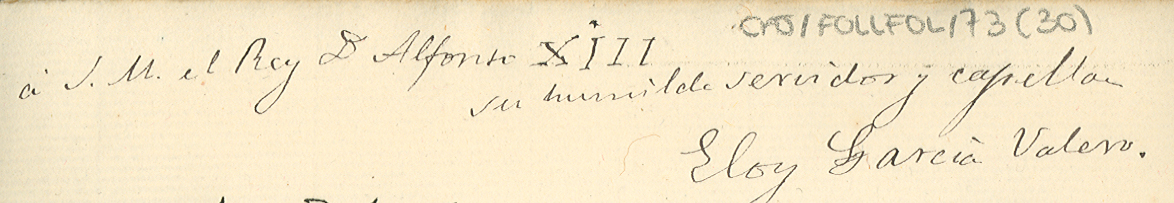 CAJ/FOLLFOL/73 (30)
á S. M. el Rey D. Alfonso XIII
su humilde servidor y capellan
Eloy García Valero.